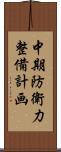 中期防衛力
整備計画